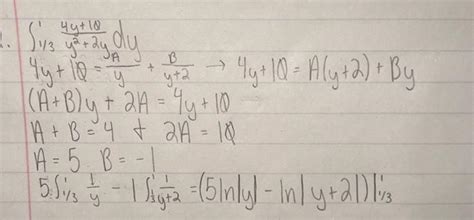 1. ∫_{1/3}^{1} (4y+10)/(y²+2y) dy
4y+10 = A/y + B/(y+2) → 4y+10 = A(y+2) + By
(A+B)y + 2A = 4y + 10
A + B = 4 & 2A = 10
A = 5 B = -1
5∫_{1/3}^{1} 1/y - 1∫_{1/3}^{1} 1/(y+2) = (5ln|y| - ln|y+2|)|_{1/3}^{1}